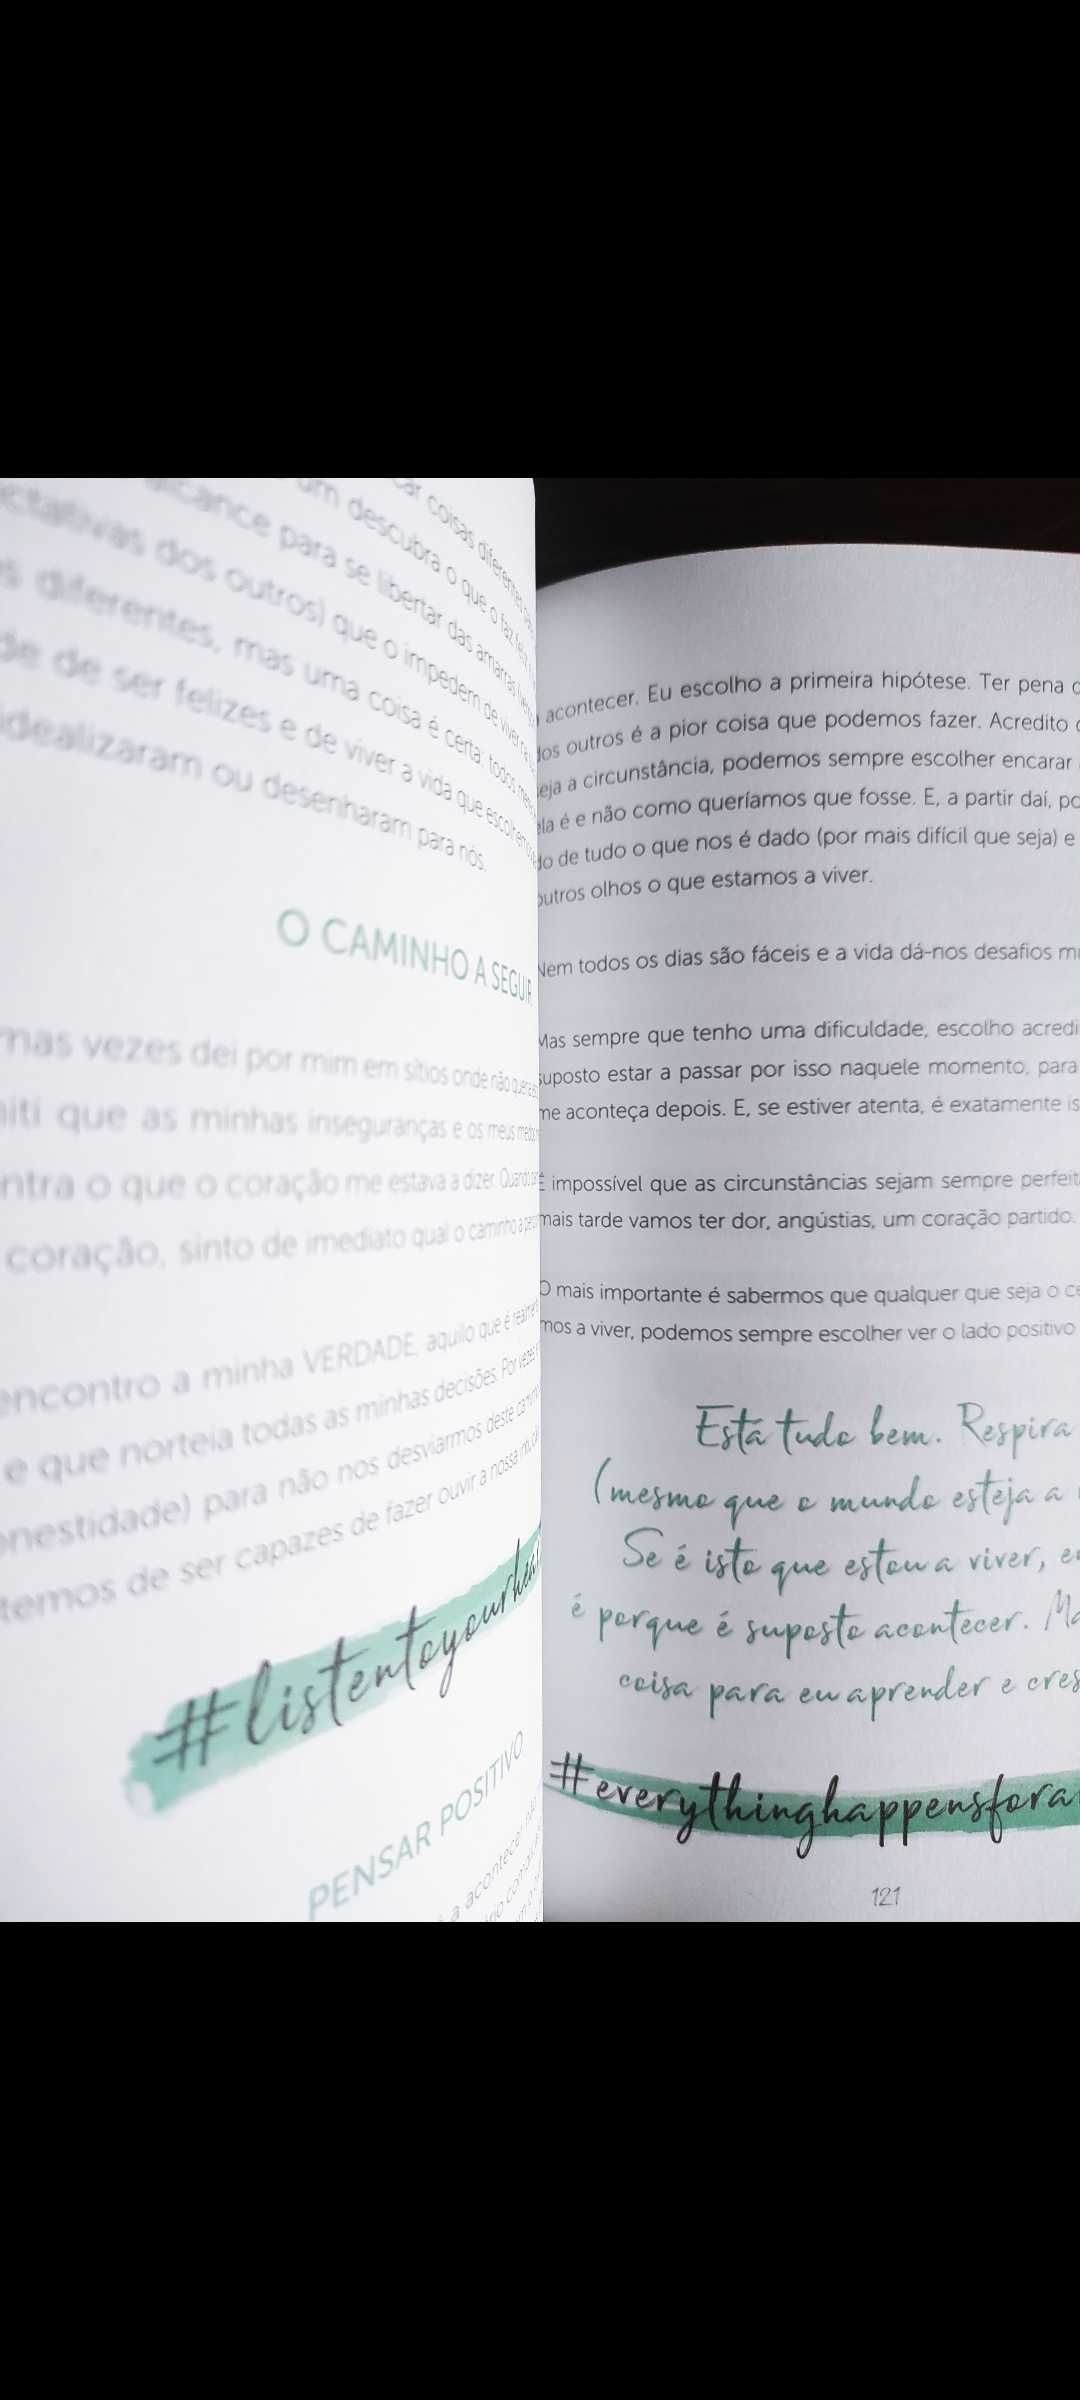 coisas diferentes
um descubra o que o faz feliz
alcance para se libertar das amarras
dos outros) que o impedem de viver
diferentes, mas uma coisa é certa: todos
de de ser felizes e de viver a vida que escolhemos
idealizaram ou desenharam para nós.
O CAMINHO A SEGUIR
mas vezes dei por mim em sítios onde não queria
que as minhas inseguranças e os meus medos
ntra o que o coração me estava a dizer. Quando
coração, sinto de imediato qual o caminho a
encontro a minha VERDADE, aquilo que é
e que norteia todas as minhas decisões. Por vezes
onestidade) para não nos desviarmos deste
temos de ser capazes de fazer ouvir a nossa
#listentoyourhea
PENSAR POSITIVO
a acontecer, não
acontecer. Eu escolho a primeira hipótese. Ter pena
dos outros é a pior coisa que podemos fazer. Acredito
eja a circunstância, podemos sempre escolher encarar
ela é e não como queríamos que fosse. E, a partir daí,
do de tudo o que nos é dado (por mais difícil que seja) e
outros olhos o que estamos a viver.
Nem todos os dias são fáceis e a vida dá-nos desafios
Mas sempre que tenho uma dificuldade, escolho acredi
suposto estar a passar por isso naquele momento, para
me aconteça depois. E, se estiver atenta, é exatamente
É impossível que as circunstâncias sejam sempre perfeit
mais tarde vamos ter dor, angústias, um coração partido.
O mais importante é sabermos que qualquer que seja o
mos a viver, podemos sempre escolher ver o lado positivo
Está tudo bem. Respira
(mesmo que o mundo esteja a
Se é isto que estou a viver,
é porque é suposto acontecer.
coisa para eu aprender e cres
#everythinghappensfora
121